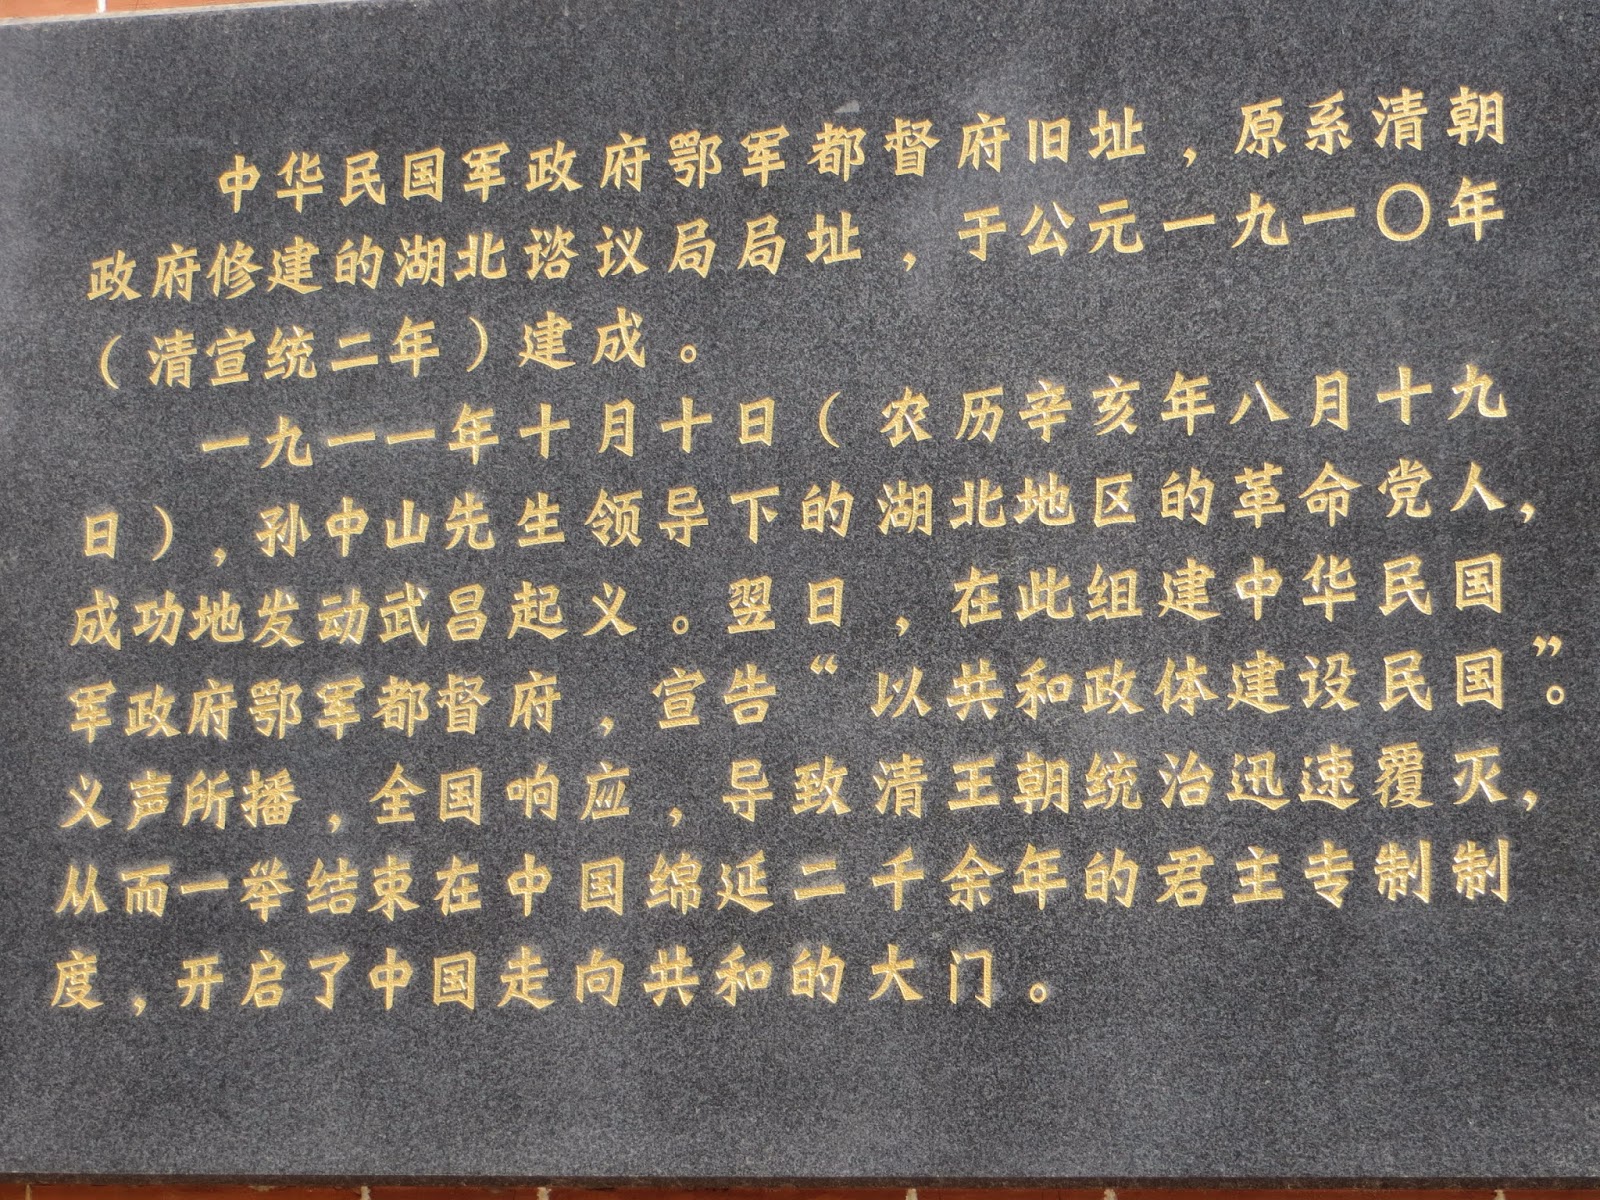 中华民国军政府鄂军都督府旧址，原系清朝
政府修建的湖北谘议局局址，于公元一九一〇年
（清宣统二年）建成。
一九一一年十月十日（农历辛亥年八月十九
日），孙中山先生领导下的湖北地区的革命党人，
成功地发动武昌起义。翌日，在此组建中华民国
军政府鄂军都督府，宣告“以共和政体建设民国”。
义声所播，全国响应，导致清王朝统治迅速覆灭，
从而一举结束在中国绵延二千余年的君主专制制
度，开启了中国走向共和的大门。